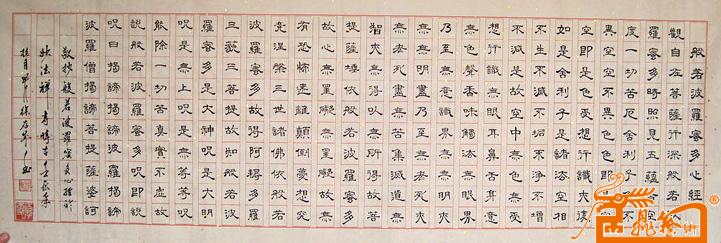 般若波羅蜜多心經
觀自在菩薩行深般若波
羅蜜多時照見五蘊皆空
度一切苦厄舍利子色不
異空空不異色色即是空
空即是色受想行識亦復
如是舍利子是諸法空相
不生不滅不垢不淨不增
不減是故空中無色無受
想行識無眼耳鼻舌身意
無色聲香味觸法無眼界
乃至無意識界無無明亦
無無明盡乃至無老死亦
無老死盡無苦集滅道無
智亦無得以無所得故菩
提薩埵依般若波羅蜜多
故心無罣礙無罣礙故無
有恐怖遠離顛倒夢想究
竟涅槃三世諸佛依般若
波羅蜜多故得阿耨多羅
三藐三菩提故知般若波
羅蜜多是大神咒是大明
咒是無上咒是無等等咒
能除一切苦真實不虛故
說般若波羅蜜多咒即說
咒曰揭諦揭諦波羅揭諦
波羅僧揭諦菩提薩婆訶
敬抄般若波羅蜜多心經於